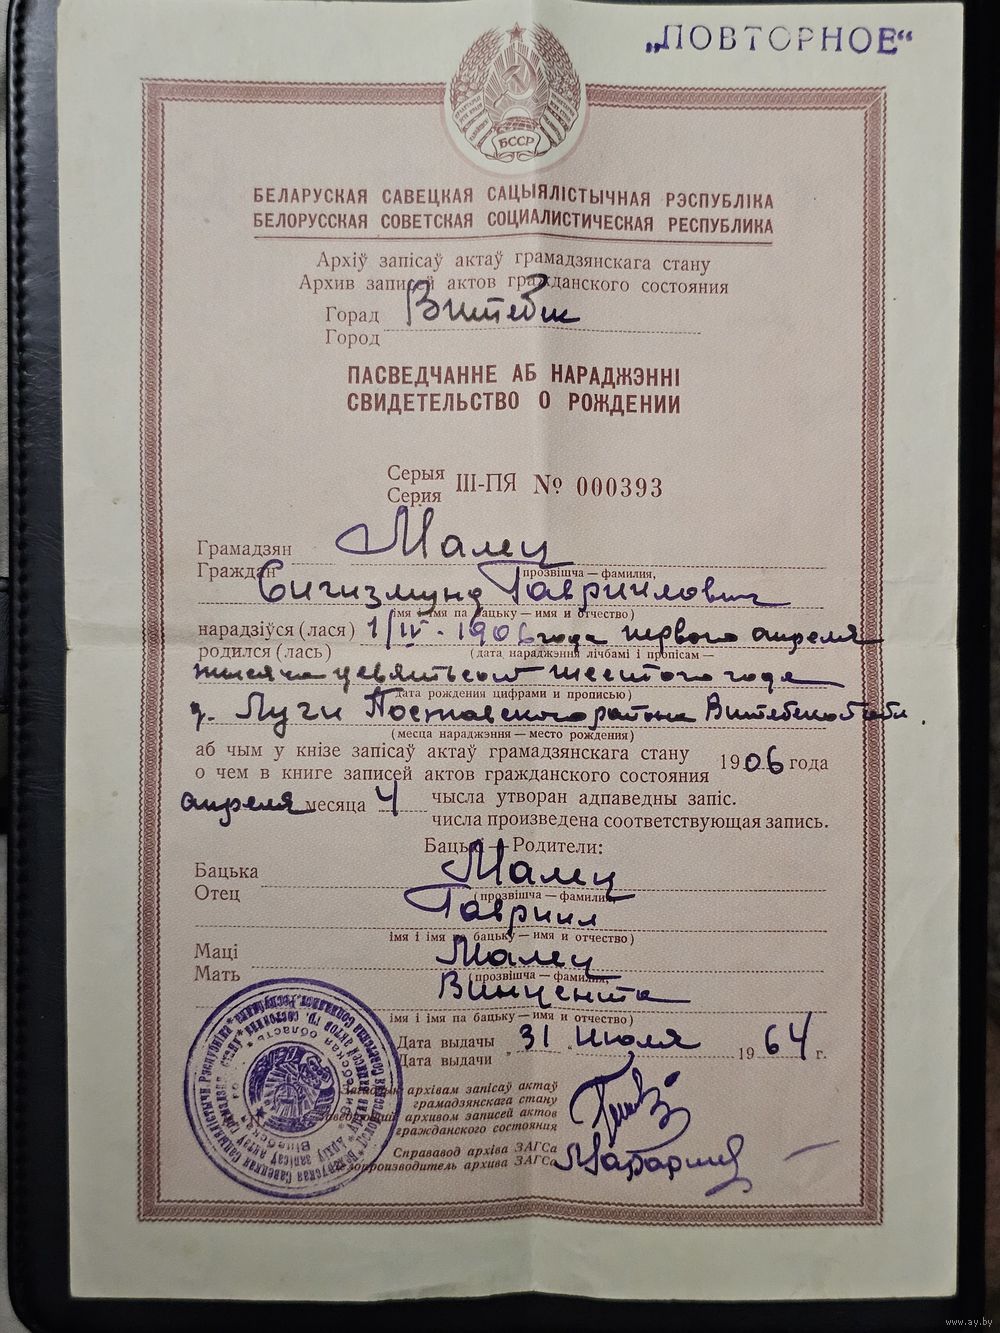 „ПОВТОРНОЕ“
БССР
БЕЛАРУСКАЯ САВЕЦКАЯ САЦЫЯЛІСТЫЧНАЯ РЭСПУБЛІКА
БЕЛОРУССКАЯ СОВЕТСКАЯ СОЦИАЛИСТИЧЕСКАЯ РЕСПУБЛИКА
Архіў запісаў актаў грамадзянскага стану
Архив записей актов гражданского состояния
Горад Витебск
Город
ПАСВЕДЧАННЕ АБ НАРАДЖЭННІ
СВИДЕТЕЛЬСТВО О РОЖДЕНИИ
Серыя
Серия III-ПЯ № 000393
Грамадзян Малец
Граждан (прозвішча — фамилия,
Сигизмунд Гавриилович
імя і імя па бацьку — имя и отчество)
нарадзіўся (лася) 1/IV - 1906 года первого апреля
родился (лась) (дата нараджэння лічбамі і пропісам —
тысяча девятьсот шестого года
дата рождения цифрами и прописью)
д. Луги Поставского района Витебской обл.
(месца нараджэння — место рождения)
аб чым у кнізе запісаў актаў грамадзянскага стану 1906 года
о чем в книге записей актов гражданского состояния
апреля месяца 4 чысла утворан адпаведны запіс.
числа произведена соответствующая запись.
Бацькі — Родители:
Бацька Малец
Отец (прозвішча — фамилия,
Гавриил
імя і імя па бацьку — имя и отчество)
Маці Малец
Мать (прозвішча — фамилия,
Винцента
імя і імя па бацьку — имя и отчество)
Дата выдачы „31“ июля 1964 г.
Дата выдачи
Загадчык архівам запісаў актаў
грамадзянскага стану
Заведующий архивом записей актов
гражданского состояния
Справавод архіва ЗАГСа
Делопроизводитель архива ЗАГСа
www.ay.by